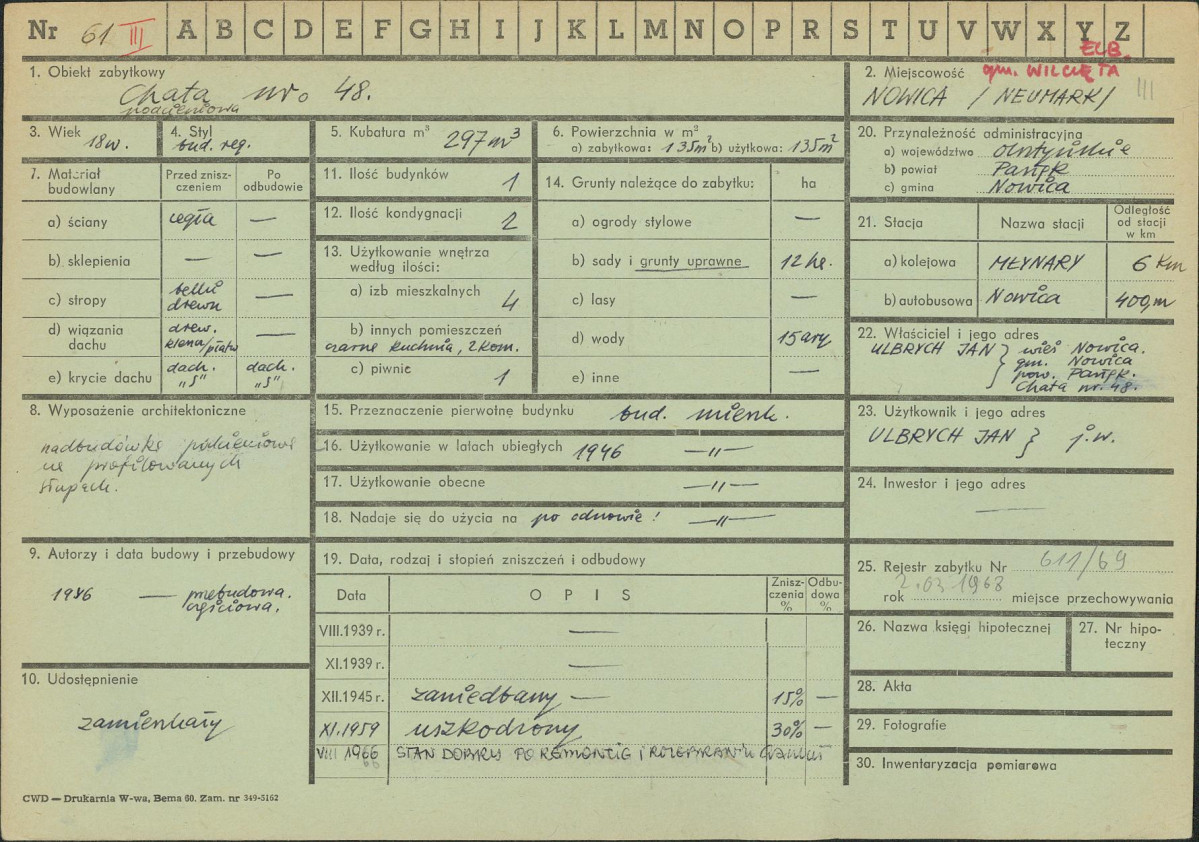 Nr 61 III A B C D E F G H I J K L M N O P R S T U V W X Y Z
ELB.
1. Obiekt zabytkowy
Chata nro 48.
podcieniowa
2. Miejscowość gm. WILCZĘTA
NOWICA / NEUMARK/ III
3. Wiek
18w.
4. Styl
bud. reg.
5. Kubatura m³ 297m³
6. Powierzchnia w m²
a) zabytkowa: 135m² b) użytkowa: 135m²
20. Przynależność administracyjna
a) województwo olsztyńskie
b) powiat Pasłęk
c) gmina Nowica
7. Materiał budowlany
Przed znisz-
czeniem
Po
odbudowie
a) ściany cegła —
b) sklepienia — —
c) stropy belki —
drewn
d) wiązania dachu drew. —
e) krycie dachu dach. dach.
„S" „S"
11. Ilość budynków 1
12. Ilość kondygnacji 2
13. Użytkowanie wnętrza
według ilości:
a) izb mieszkalnych 4
b) innych pomieszczeń
czarna kuchnia, 2 kom.
c) piwnic 1
14. Grunty należące do zabytku: ha
a) ogrody stylowe —
b) sady i grunty uprawne 12 ha.
c) lasy —
d) wody 15 ary
e) inne —
21. Stacja Nazwa stacji Odległość
od stacji
w km
a) kolejowa MŁYNARY 6 Km
b) autobusowa Nowica 400,m
22. Właściciel i jego adres
ULBRYCH JAN } wieś Nowica.
gm. Nowica
pow. Pasłęk.
Chata nr. 48.
8. Wyposażenie architektoniczne
nadbudówka podcieniowa
na profilowanych
słupach.
15. Przeznaczenie pierwotne budynku bud. mieszk.
16. Użytkowanie w latach ubiegłych 1946 —„—
17. Użytkowanie obecne —„—
18. Nadaje się do użycia na po odnowie! —„—
23. Użytkownik i jego adres
ULBRYCH JAN } j.w.
24. Inwestor i jego adres
—
9. Autorzy i data budowy i przebudowy
1946 — przebudowa.
częściowa.
19. Data, rodzaj i stopień zniszczeń i odbudowy
Data OPIS Znisz-
czenia
%
Odbu-
dowa
%
VIII.1939 r. —
XI.1939 r. —
XII.1945 r. zaniedbany — 15% —
XI.1959 uszkodzony 30% —
VIII 1966 STAN DOBRY PO REMONCIE I ROZEBRANIU
66
25. Rejestr zabytku Nr 611/69
rok 2.03.1968 miejsce przechowywania
26. Nazwa księgi hipotecznej
27. Nr hipo-
teczny
10. Udostępnienie
zamieszkały
28. Akta
29. Fotografie
30. Inwentaryzacja pomiarowa
CWD — Drukarnia W-wa, Bema 60. Zam. nr 349-5162